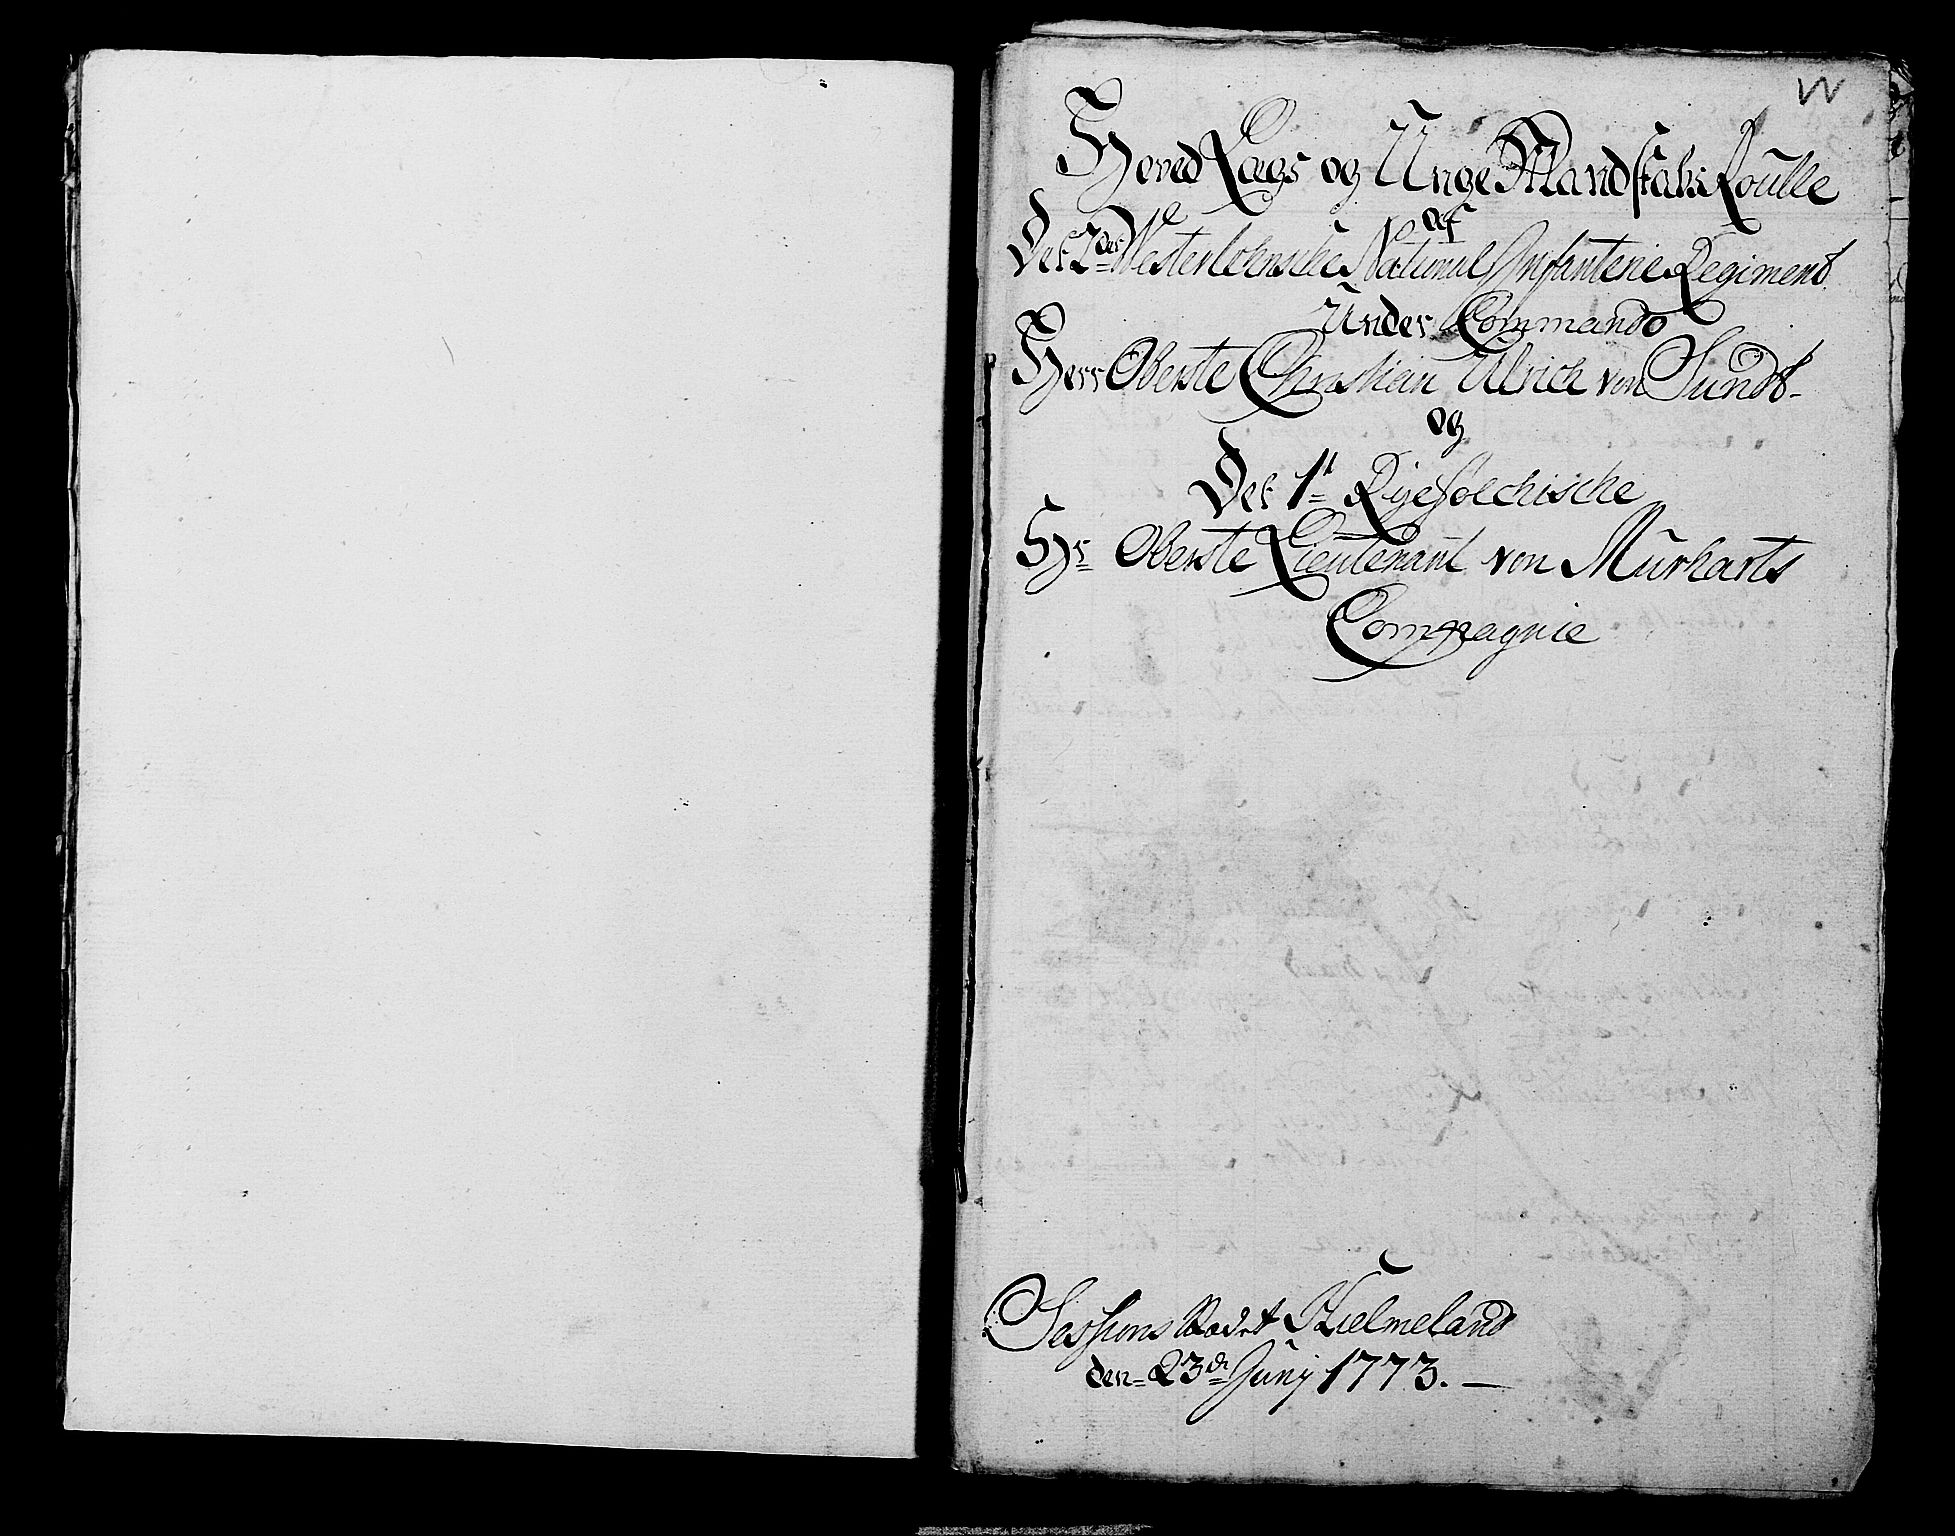 W
Hoved Lægs og Unge Mandskabs Roulle
af
Det 2det Westerlehnsche National Infanterie Regiment
Under Commando
Herr Oberste Christian Ulrich von Sundt
og
Det 1te Ryefølchische
Hr Oberste Lieutenant von Murharts
Compagnie
Sessions Stædet Hielmeland
den 23de Junij 1773.